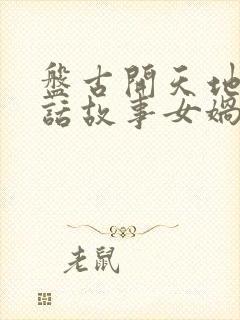 盤古開天地
話故事女媧
老鼠